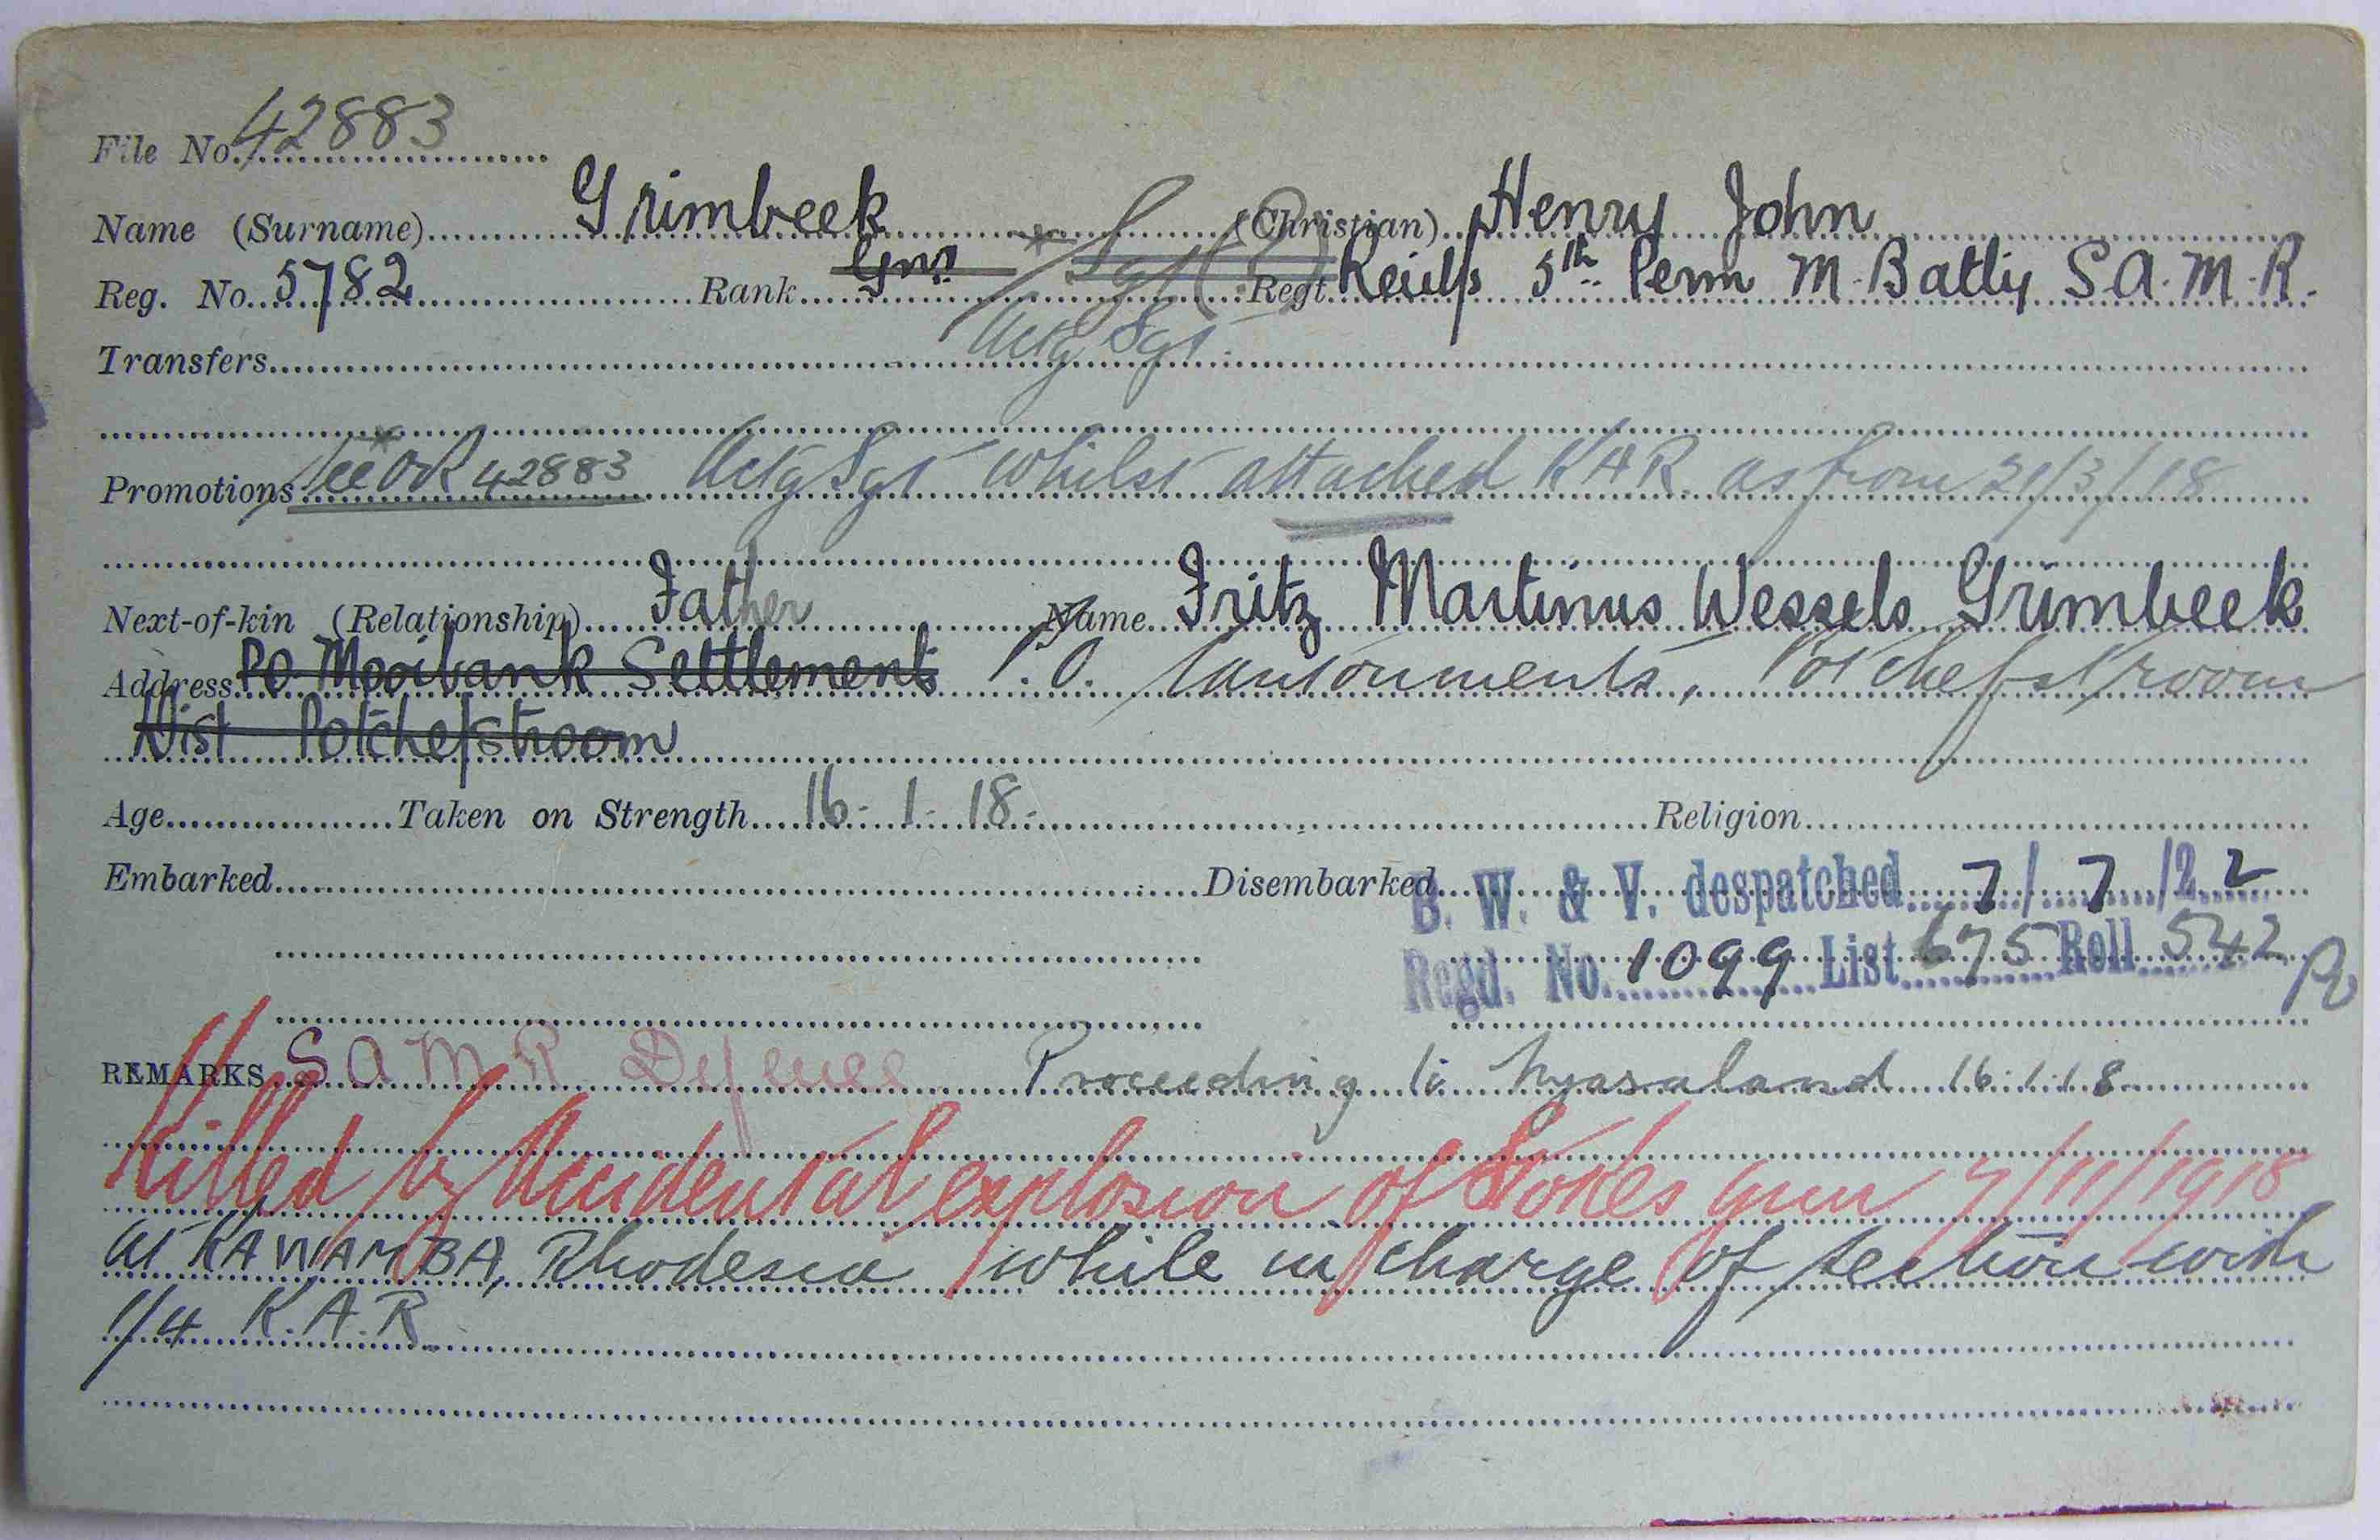 File No. 42883
Name (Surname) Grimbeek (Christian) Henry John
Reg. No. 5782 Rank Gnr * Sgt (?) Regt. Reinfs 5th Perm M. Batty S.A.M.R.
Actg Sgt.
Transfers
Promotions * See OR 42883 Actg Sgt whilst attached KAR as from 21/3/18
Next-of-kin (Relationship) Father Name Fritz Martinus Wessels Grimbeek
Address PO Mooibank Settlement P.O. Cantonments, Potchefstroom
Dist Potchefstroom
Age Taken on Strength 16.1.18. Religion
Embarked Disembarked
B. W. & V. despatched 7/7/22
Regd. No. 1099 List 675 Roll 542
REMARKS S A M R Defence Proceeding to Nyasaland 16.1.18
Killed by Accidental explosion of Stokes gun 7/11/1918
at KAWAMBA, Rhodesia while in charge of section with
1/4 K.A.R.